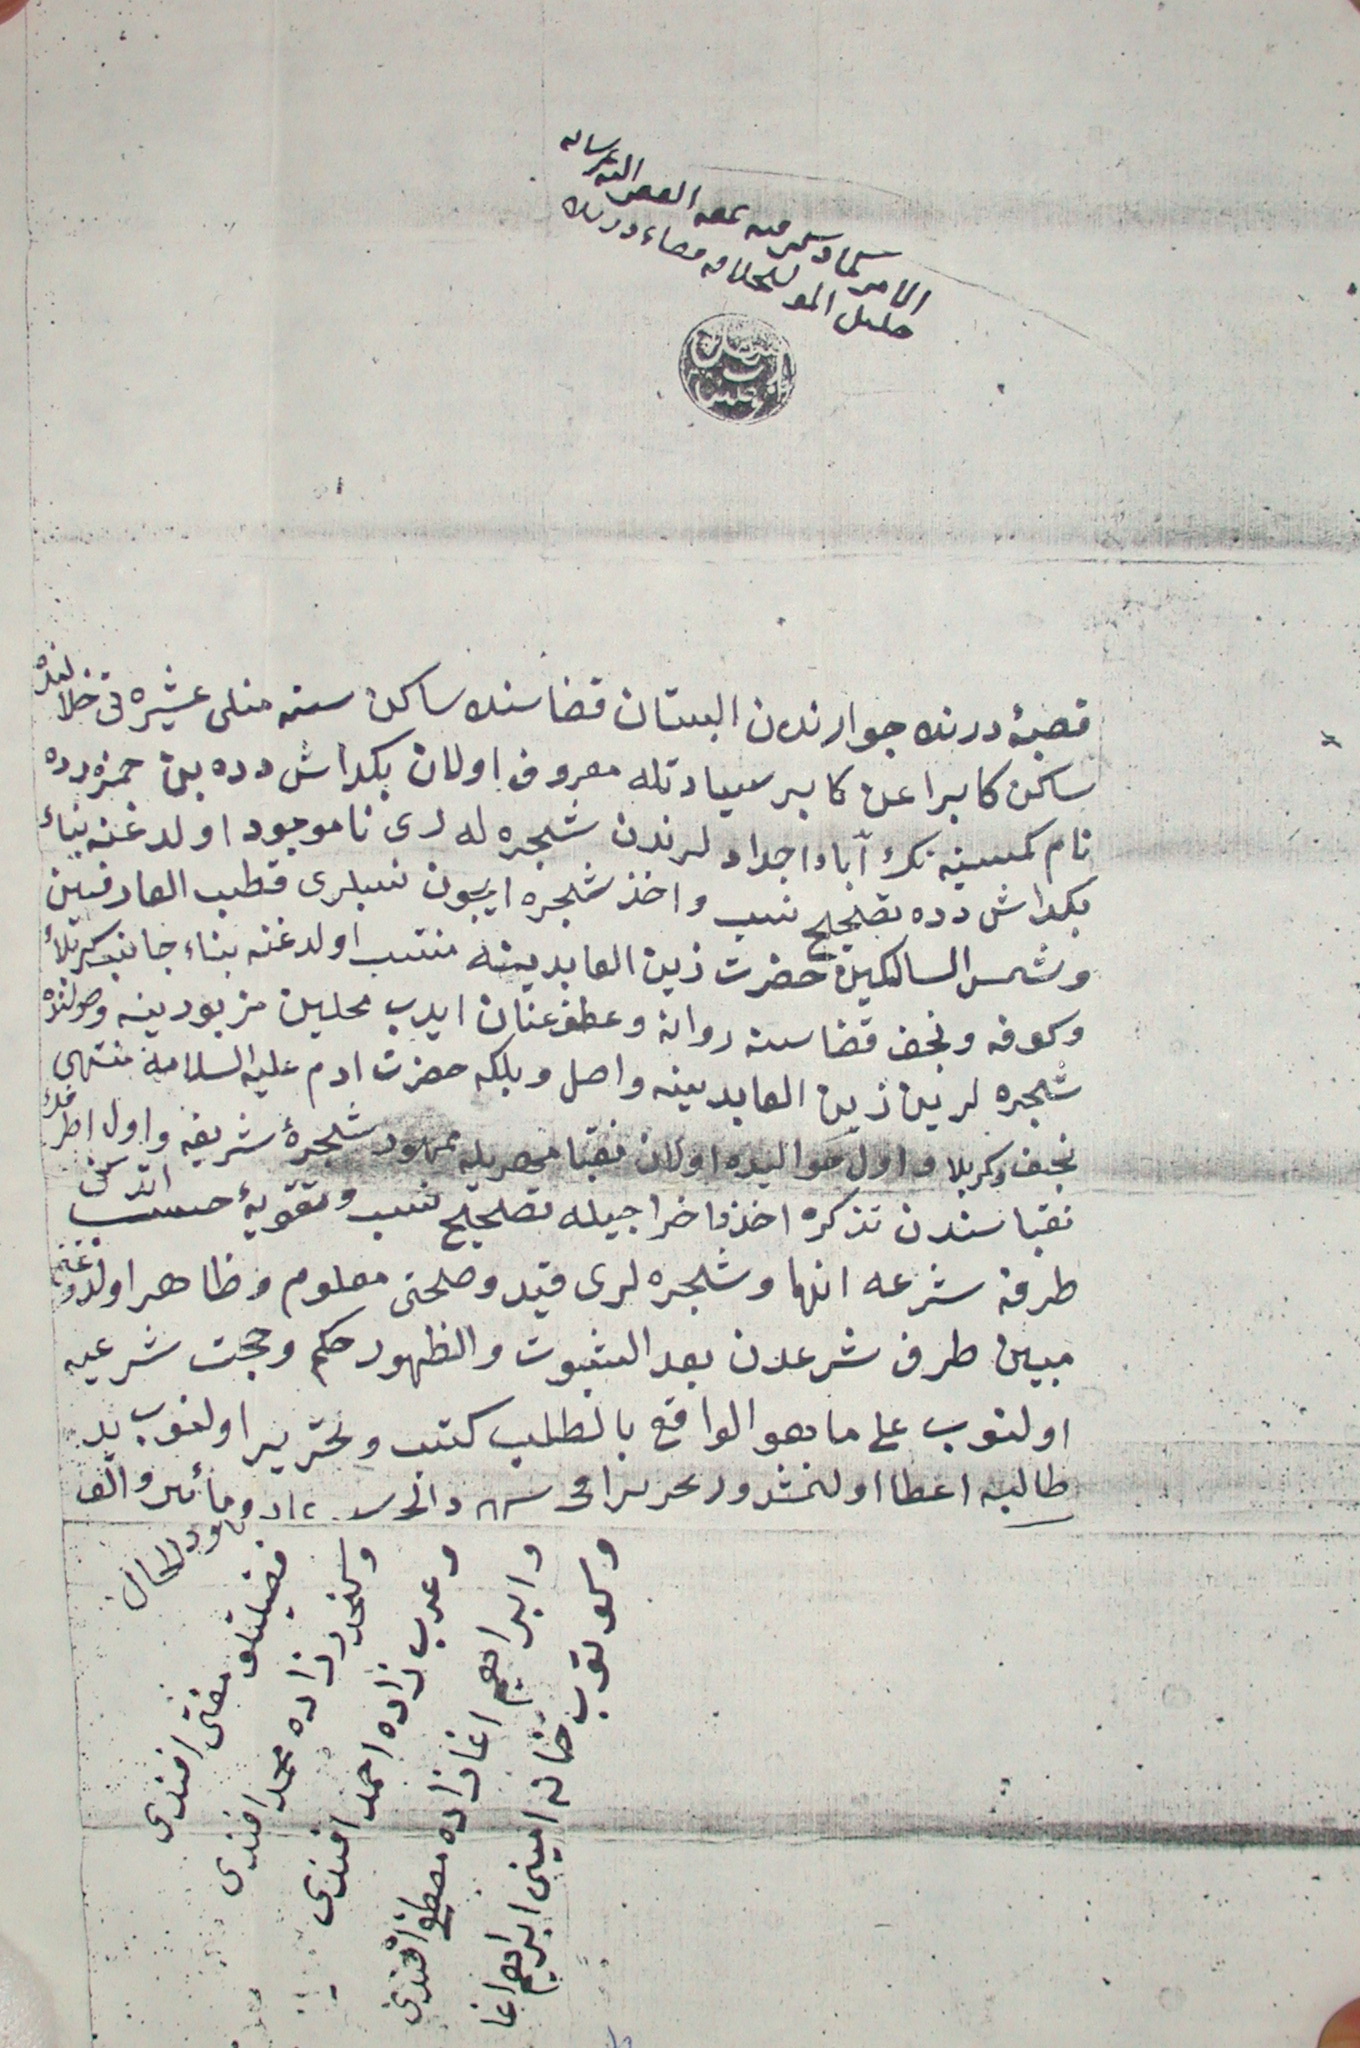 الامر كما ذكر فيه نمقه الفقير اليه عز شانه
خليل المولى بخلافه قضاء درنده
قصبۀ درنده جوارندن البستان قضاسنده ساكن سنه منلى عشيره تى خلالنده
ساكن كابرا عن كابر سيادتله معروف اولان بكداش دده بن حمزه دده
نام كمسينه نك آباء اجداد لرندن شجره له رى ناموجود اولدغنه بناء
بكداش دده تصحيح نسب واخذ شجره ايچون نسبلرى قطب العارفين
وشمس السالكين حضرت زين العابدينه منتسب اولدغنه بناء جانب كربلاء
وكوفه ونجف قضاسنه روانه وعطف عنان ايدب محلين مزبورينه وصولنده
شجره لرين زين العابدينه واصل وبلكه حضرت ادم عليه السلامه منتهى
نجف وكربلا واول حواليده اولان نقبا مهريله ممهور شجرۀ شريفه واول اطرافك
نقباسندن تذكره اخذ واخراجيله تصحيح نسب وتقويۀ حسب اتدكن
طرفه شرعه انها وشجره لرى قيد وصحتى معلوم وظاهر اولدوغنى
مبين طرف شرعدن بعد الثبوت والظهور حكم وحجت شرعيه
اولنوب على ما هو الواقع بالطلب كتب وتحرير اولنوب يد
طالبه اعطا اولنمشدر تحريرا فى سنه ومائتين والف
شهود الحال
فضيلتلو مفتى افندى
زاده محمد افندى
وعرب زاده احمد افندى
وابراهيم اغا زاده مصطفى افندى
خانه امينى ابراهيم اغا